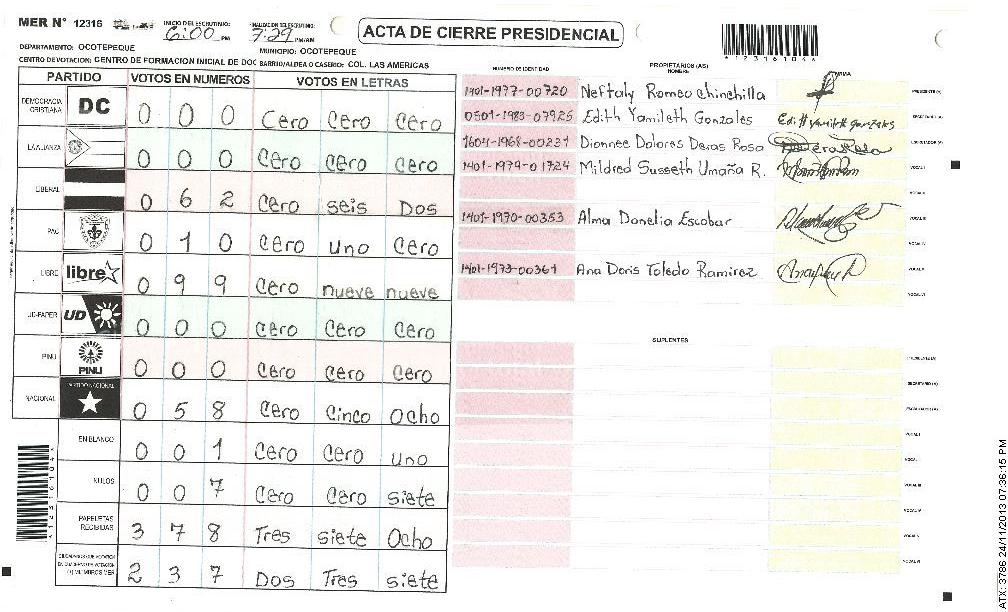 MER N° 12316 INICIO DEL ESCRUTINIO: 6:00 PM FINALIZACION DEL ESCRUTINIO: 7:29 PM/AM
ACTA DE CIERRE PRESIDENCIAL
*12316104*
DEPARTAMENTO: OCOTEPEQUE MUNICIPIO: OCOTEPEQUE
CENTRO DE VOTACION: CENTRO DE FORMACION INICIAL DE DOC BARRIO/ALDEA O CASERIO: COL. LAS AMERICAS
PARTIDO VOTOS EN NUMEROS VOTOS EN LETRAS
DEMOCRACIA CRISTIANA DC 0 0 0 Cero Cero Cero
LA ALIANZA 0 0 0 Cero Cero Cero
LIBERAL 0 6 2 Cero seis Dos
PAC 0 1 0 Cero uno Cero
LIBRE libre 0 9 9 Cero nueve nueve
UD-FAPER UD 0 0 0 Cero Cero Cero
PINU PINU 0 0 0 Cero Cero Cero
NACIONAL PARTIDO NACIONAL 0 5 8 Cero Cinco Ocho
EN BLANCO 0 0 1 Cero Cero uno
NULOS 0 0 7 Cero Cero siete
PAPELETAS RECIBIDAS 3 7 8 Tres siete Ocho
CIUDADANOS QUE VOTARON EN CUADERNO DE VOTACION (+) MIEMBROS MER 2 3 7 Dos Tres siete
NUMERO DE IDENTIDAD PROPIETARIOS (AS) NOMBRE FIRMA
1401-1977-00720 Neftaly Romeo Chinchilla PRESIDENTE (A)
0501-1983-07925 Edith Yamileth Gonzales Edith yamileth gonzales SECRETARIO (A)
1604-1968-00231 Dionnee Dolores Deras Rosa ESCRUTADOR (A)
1401-1979-01724 Mildred Susseth Umaña R. VOCAL I
VOCAL II
1401-1970-00353 Alma Donelia Escobar VOCAL III
VOCAL IV
1401-1973-00361 Ana Doris Toledo Ramirez VOCAL V
VOCAL VI
SUPLENTES
PRESIDENTE (A)
SECRETARIO (A)
ESCRUTADOR (A)
VOCAL I
VOCAL II
VOCAL III
VOCAL IV
VOCAL V
VOCAL VI
*12316104*
ATX: 3786 24/11/2013 07:36:15 PM